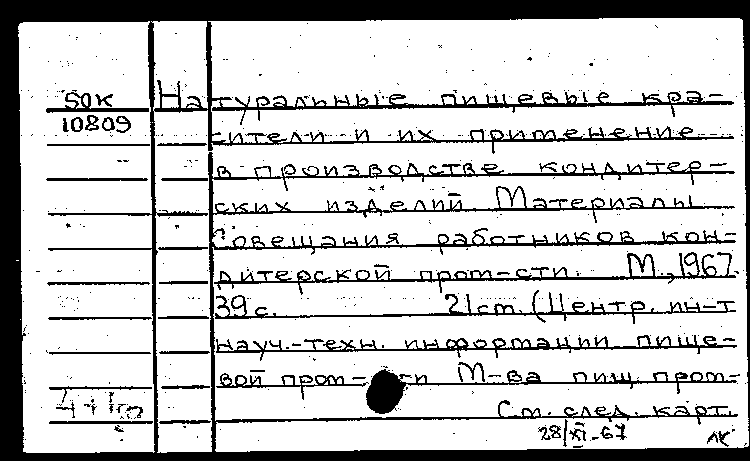 50К
10809
Натуральные пищевые кра-
сители и их применение
в производстве кондитер-
ских изделий Материалы
Совещания работников кон-
дитерской пром-сти. М., 1967.
39 с. 21 см. (Центр. ин-т
науч.-техн. информации пище-
вой пром-сти М-ва пищ. пром-
См. след. карт.
28/XI-67